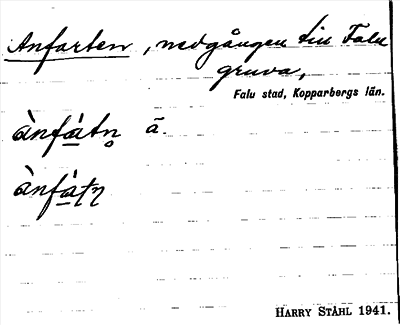 Anfarten, nedgången till Falu
gruva,
Falu stad, Kopparbergs län.
ànfátn̥ ā.
ànfátn
HARRY STÅHL 1941.